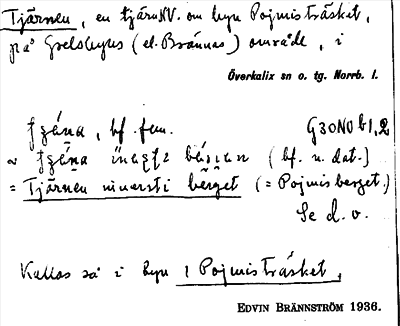 Tjärnen, en tjärn NV. om byn Pojmisträsket,
på Grelsbyns (el. Brännas) område, i
Överkalix sn o. tg. Norrb. l.
bf. fem. G30NO b1,2
~ (bf. n. dat.)
= Tjärnen innersti bärget (= Pojmisberget.)
Se d. o.
Kallas så i byn 1 Pojmisträsket,
EDVIN BRÄNNSTRÖM 1936.